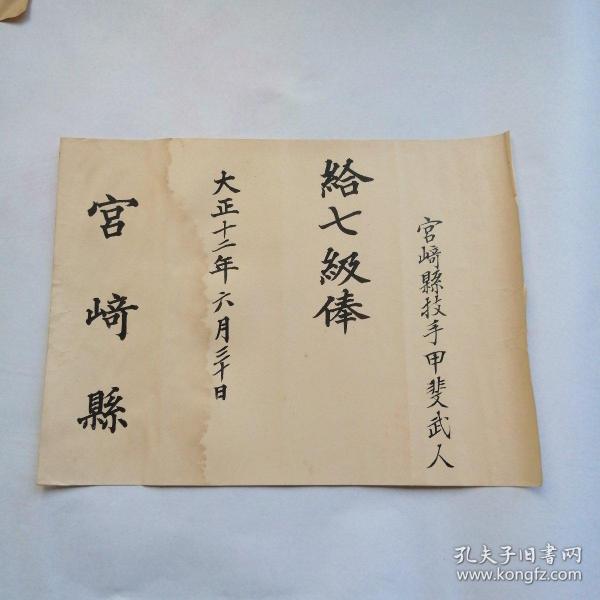 宮﨑縣技手甲斐武人
給七級俸
大正十二年六月三十日
宮﨑縣
孔夫子旧書网
www.kongfz.com